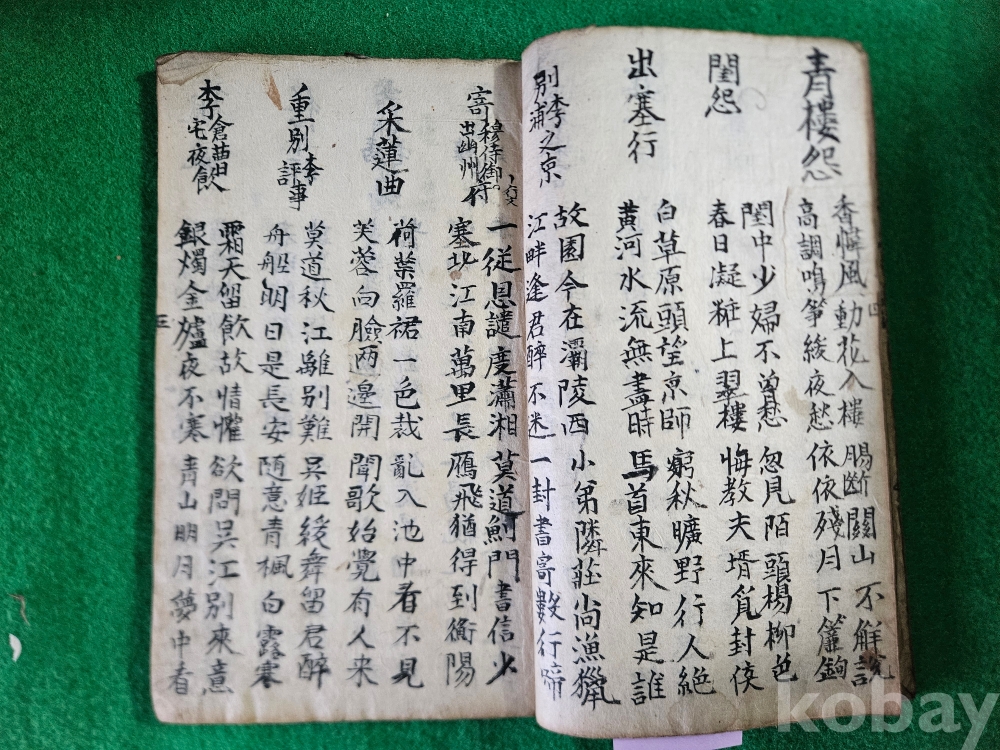 青樓怨
香幃風動花入樓 腸斷關山不解說
高調鳴箏緩夜愁 依依殘月下簾鉤
閨怨
閨中少婦不曾愁 忽見陌頭楊柳色
春日凝粧上翠樓 悔教夫壻覓封侯
出塞行
白草原頭望京師 窮秋曠野行人絶
黃河水流無盡時 馬首東來知是誰
別李浦之京
故園今在灞陵西 小弟隣莊尚漁獵
江畔逢君醉不迷 一封書寄數行啼
寄穆侍御出幽州
一從恩譴度瀟湘 莫道薊門書信少
塞北江南萬里長 鴈飛猶得到衡陽
采蓮曲
荷葉羅裙一色裁 亂入池中看不見
芙蓉向臉兩邊開 聞歌始覺有人來
重別李評事
莫道秋江離別難 吳姬緩舞留君醉
舟船明日是長安 隨意青楓白露寒
李倉曹宅夜飲
霜天留飲故情懽 欲問吳江別來意
銀燭金爐夜不寒 青山明月夢中看
三
kobay